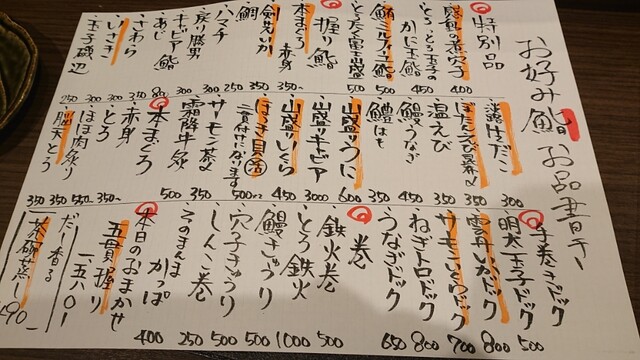 お好み鮨 お品書き
特別品
自慢の煮穴子 400
とろ・とろ玉子の
かに玉鮨 450
鮪ミルフィーユ鮨 500
とろたく雲丹盛 500
握り鮨
本まぐろ 赤身 350〜
剣先いか 350
鯛 250
ハマチ 300
戻り鰹 300
キャビア鮨
あじ 300
さわら 300
いさき 300
玉子磯辺 250
淡路生だこ 300
ぼたんえび昆布〆 350
温えび 350
鰻うなぎ 450
鱧はも 350
山盛りうに 600
山盛りキャビア 3000
山盛りいくら 450
ほっき貝
二貫付になります 500
サーモン茶〆 350
霜降牛炙 500
本まぐろ
赤身 350〜
とろ 550〜
ほほ肉炙り 350
とろ 350
手巻きドック
明太玉子ドック 500
雲丹いかドック 800
サーモンいくらドック 700
ねぎトロドック 800
うなぎドック 650
巻
鉄火巻 500
とろ鉄火 1000
鰻きゅうり 500
穴子きゅうり 500
しんこ巻 250
そのまんま
かっぱ 400
本日のおまかせ
五貫握り
一五八〇
茶碗蒸し
490